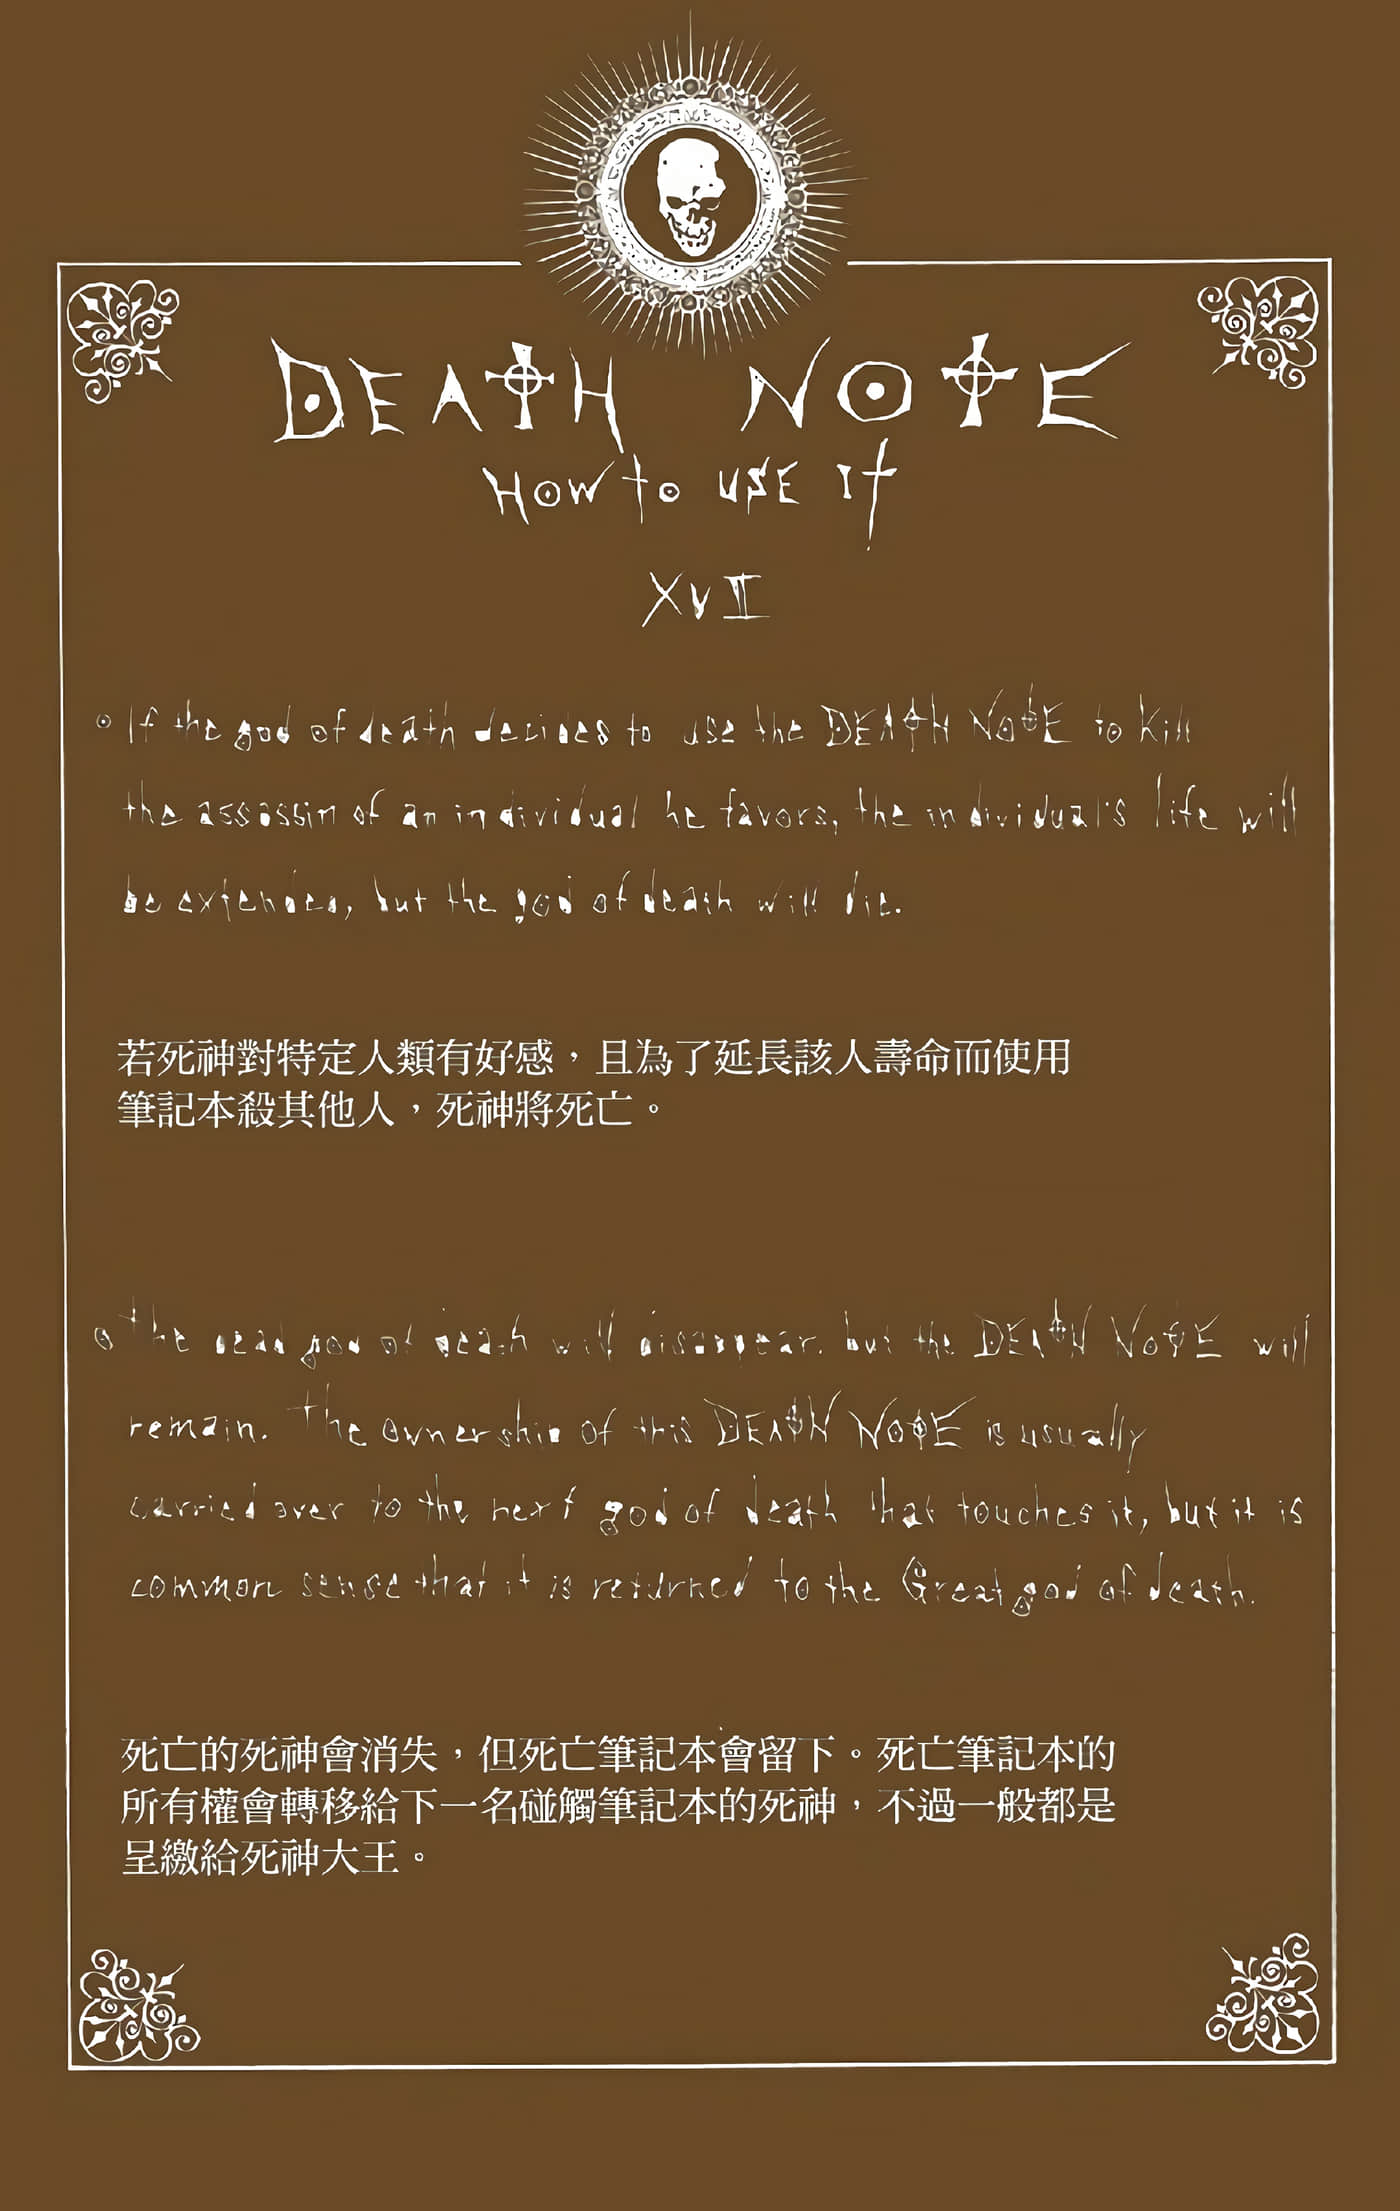 DEATH NOTE
HOW to USE It
XVII
If the god of death decides to use the DEATH NOTE to kill
the assassin of an individual he favors, the individual's life will
be extended, but the god of death will die.
若死神對特定人類有好感，且為了延長該人壽命而使用
筆記本殺其他人，死神將死亡。
The dead god of death will disappear, but the DEATH NOTE will
remain. The ownership of this DEATH NOTE is usually
carried over to the next god of death that touches it, but it is
common sense that it is returned to the Great god of death.
死亡的死神會消失，但死亡筆記本會留下。死亡筆記本的
所有權會轉移給下一名碰觸筆記本的死神，不過一般都是
呈繳給死神大王。